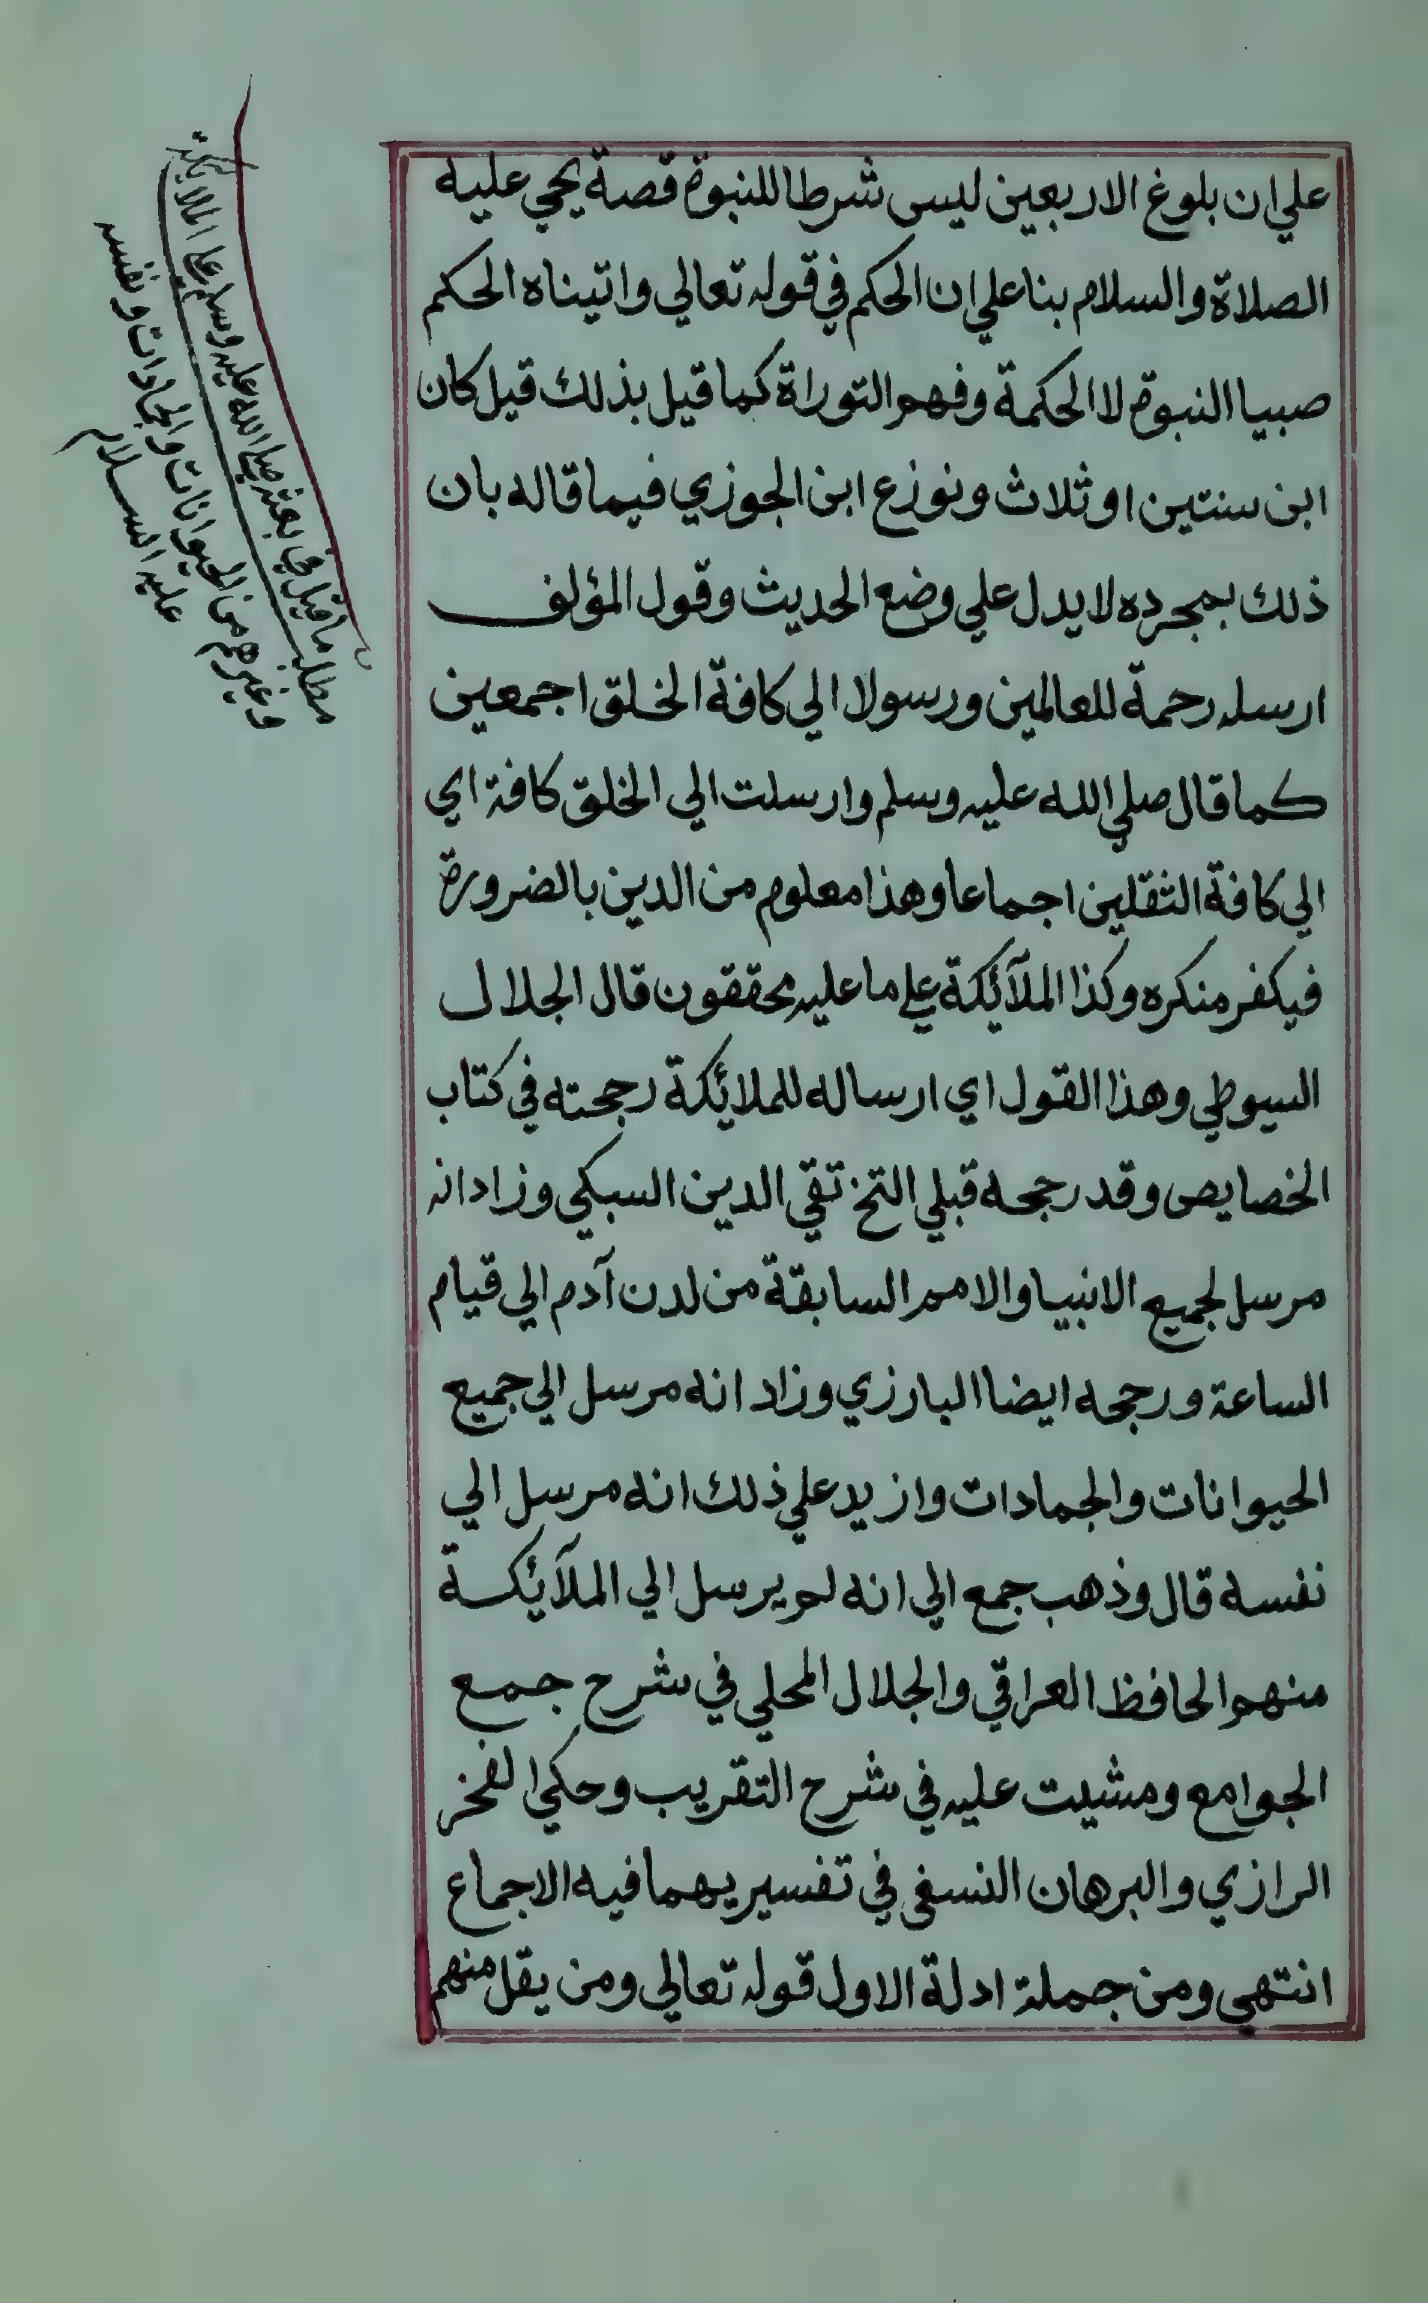 علي ان بلوغ الاربعين ليس شرطا للنبوة قصة يحي عليه
الصلاة والسلام بنا علي ان الحكم في قوله تعالي واتيناه الحكم
صبيا النبوة لا الحكمة وفهم التوراة كما قيل بذلك قيل كان
ابن سنتين او ثلاث ونوزع ابن الجوزي فيما قاله بان
ذلك بمجرده لا يدل علي وضع الحديث وقول المؤلف
ارسله رحمة للعالمين ورسولا الي كافة الخلق اجمعين
كما قال صلي الله عليه وسلم وارسلت الي الخلق كافة اي
الي كافة الثقلين اجماعا وهذا معلوم من الدين بالضرورة
فيكفر منكره وكذا الملآئكة علي ما عليه محققون قال الجلال
السيوطي وهذا القول اي ارساله للملائكة رجحته في كتاب
الخصايص وقد رجحه قبلي التخ تقي الدين السبكي وزاد انه
مرسل لجميع الانبيا والامم السابقة من لدن آدم الي قيام
الساعة ورجحه ايضا البارزي وزاد انه مرسل الي جميع
الحيوانات والجمادات وازيد علي ذلك انه مرسل الي
نفسه قال وذهب جمع الي انه لم يرسل الي الملآئكة
منهم الحافظ العراقي والجلال المحلي في شرح جمع
الجوامع ومشيت عليه في شرح التقريب وحكي الفخر
الرازي والبرهان النسفي في تفسيريهما فيه الاجماع
انتهي ومن جملة ادلة الاول قوله تعالي ومن يقل منهم
ما قيل في بعثه صلي الله عليه وسلم علي الملائكة
وغيرهم من الحيوانات والجمادات ونفسه
عليه السلام